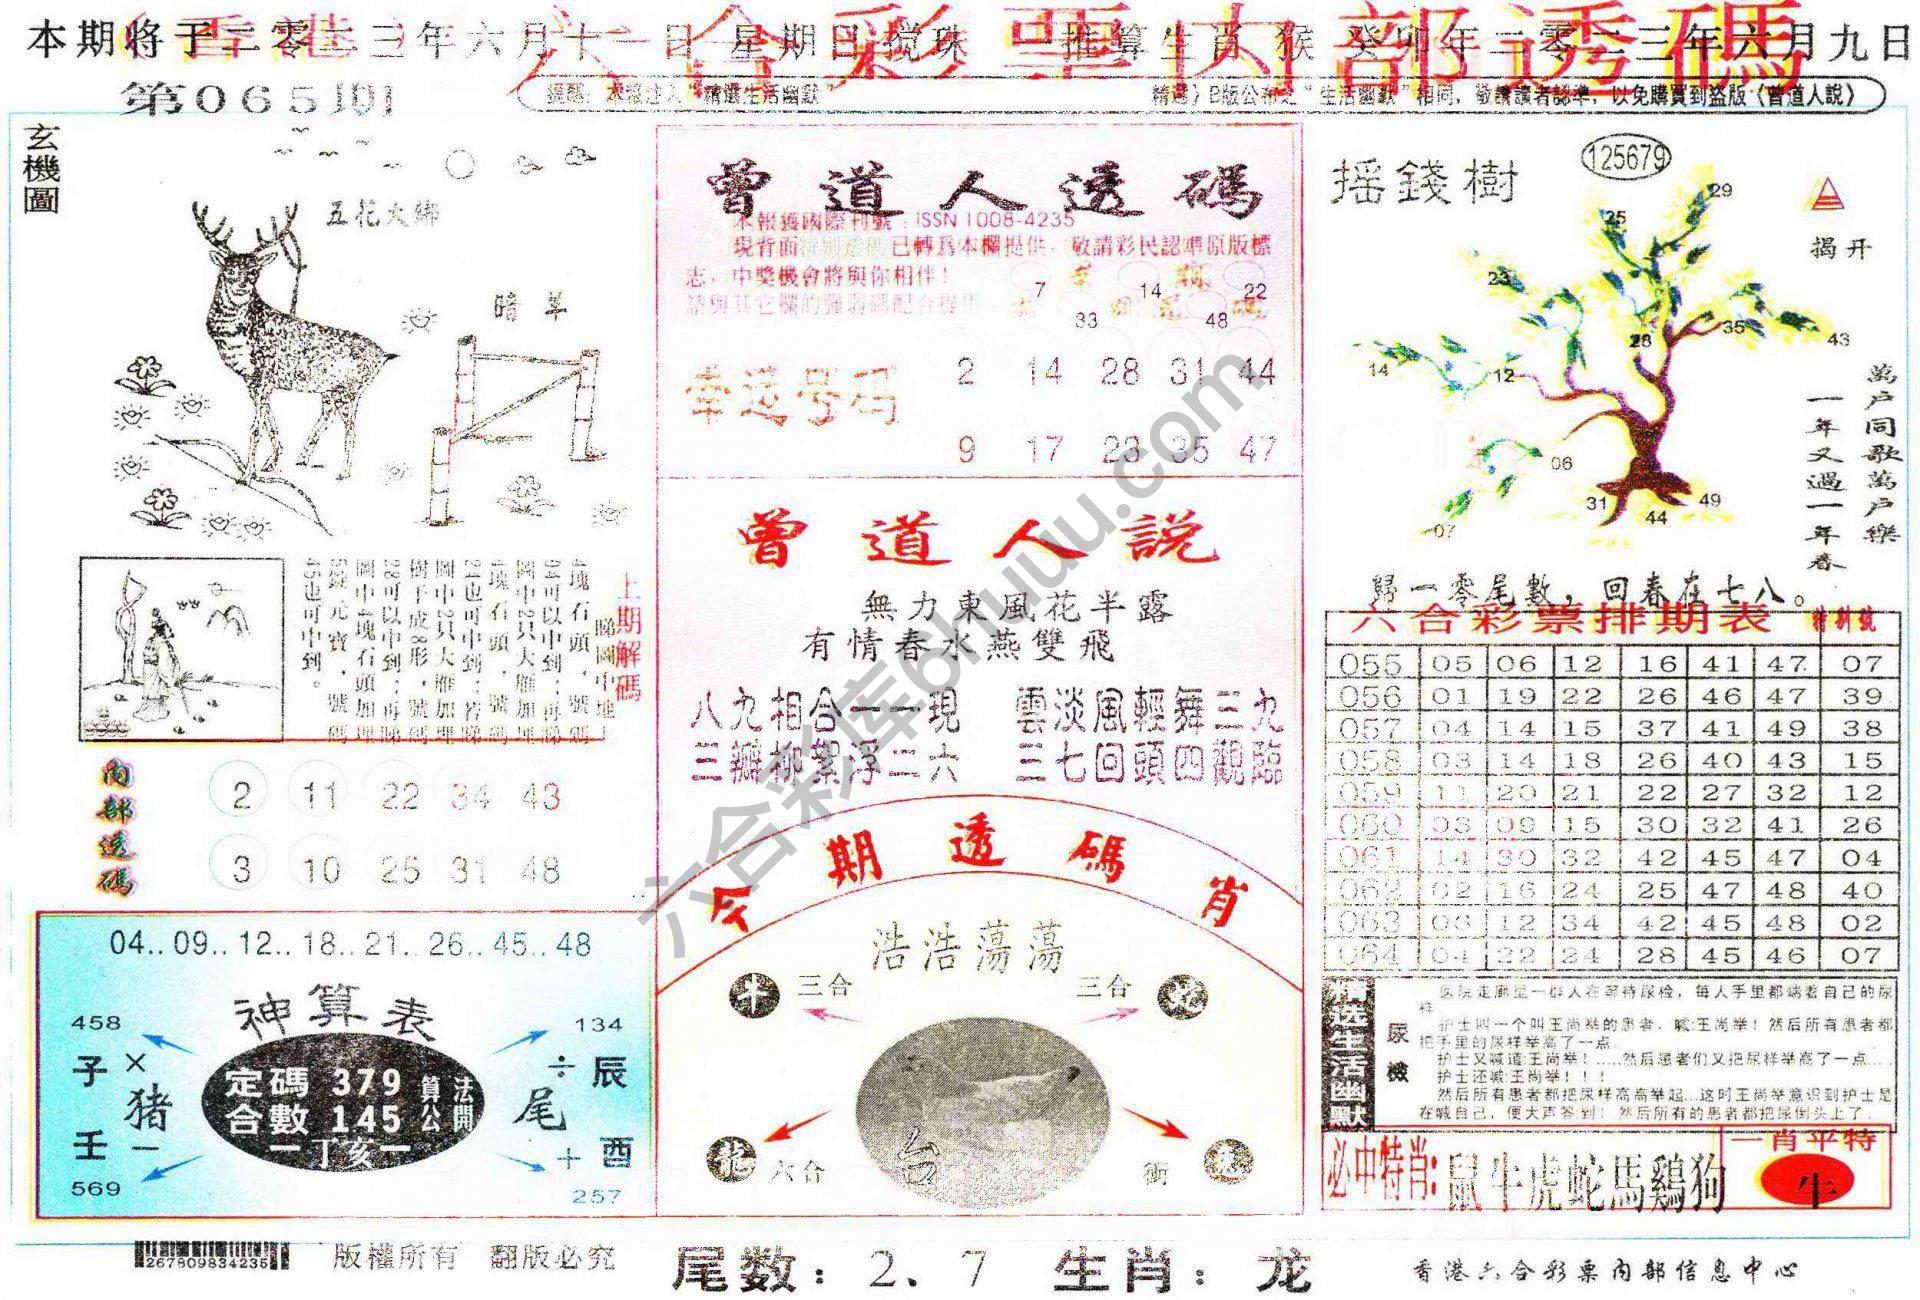 本期将于二零二三年六月十一日 星期日搅珠
推算生肖 猴 癸卯年二零二三年六月九日
香港六合彩票内部透碼
第065期
精選生活幽默
精選）B版公布之“生活幽默”相同，敬請讀者認準，以免購買到盜版《曾道人說》
玄機圖
五花大绑
暗羊
上期解碼
內部透碼
2 11 22 34 43
3 10 25 31 48
04..09..12..18..21..26..45..48
神算表
458 134
子 × 猪 ÷ 辰
定碼 379
合數 145
算公 法開
一丁亥一
尾
壬 一 + 酉
569 257
曾道人透碼
本報獲國際刊號：ISSN 1008-4235
現背面特別透碼已轉爲本欄提供，敬請彩民認準原版標
志，中獎機會將與你相伴！
請與其它欄的強弱碼配合提用
7 14 22
33 48
幸运号码
2 14 28 31 44
9 17 23 35 47
曾道人說
無力東風花半露
有情春水燕雙飛
八九相合一一現 雲淡風輕舞三九
三瓣柳絮浮二六 三七回頭四觀臨
今期透碼肖
浩浩蕩蕩
牛 三合 三合 蛇
台
龍 六合 衝
摇錢樹
125679
揭开
29
25
23
28
35
43
14
12
06
31
44
49
07
萬户同歌萬户樂
一年又過一年春
歸一零尾數，回春在七八。
六合彩票排期表 特別號
055 05 06 12 16 41 47 07
056 01 19 22 26 46 47 39
057 04 14 15 37 41 49 38
058 03 14 18 26 40 43 15
059 11 20 21 22 27 32 12
060 03 09 15 30 32 41 26
061 14 30 32 42 45 47 04
062 02 16 24 25 47 48 40
063 06 12 34 42 45 48 02
064 04 22 24 28 45 46 07
精选生活幽默
尿檢
医院走廊里一群人在等待尿检，每人手里都端着自己的尿
样
护士叫一个叫王尚举的患者，喊：王尚举！然后所有患者都
把手里的尿样举高了一点
护士又喊道：王尚举！....然后患者们又把尿样举高了一点....
护士还喊：王尚举！！！
然后所有患者都把尿样高高举起...这时王尚举意识到护士是
在喊自己，便大声答：到！然后所有的患者都把尿倒头上了
必中特肖：鼠牛虎蛇馬鷄狗
一肖平特
牛
267809834235
版權所有 翻版必究
尾数：2、7 生肖：龙
香港六合彩票内部信息中心
六合彩库6huuu.com